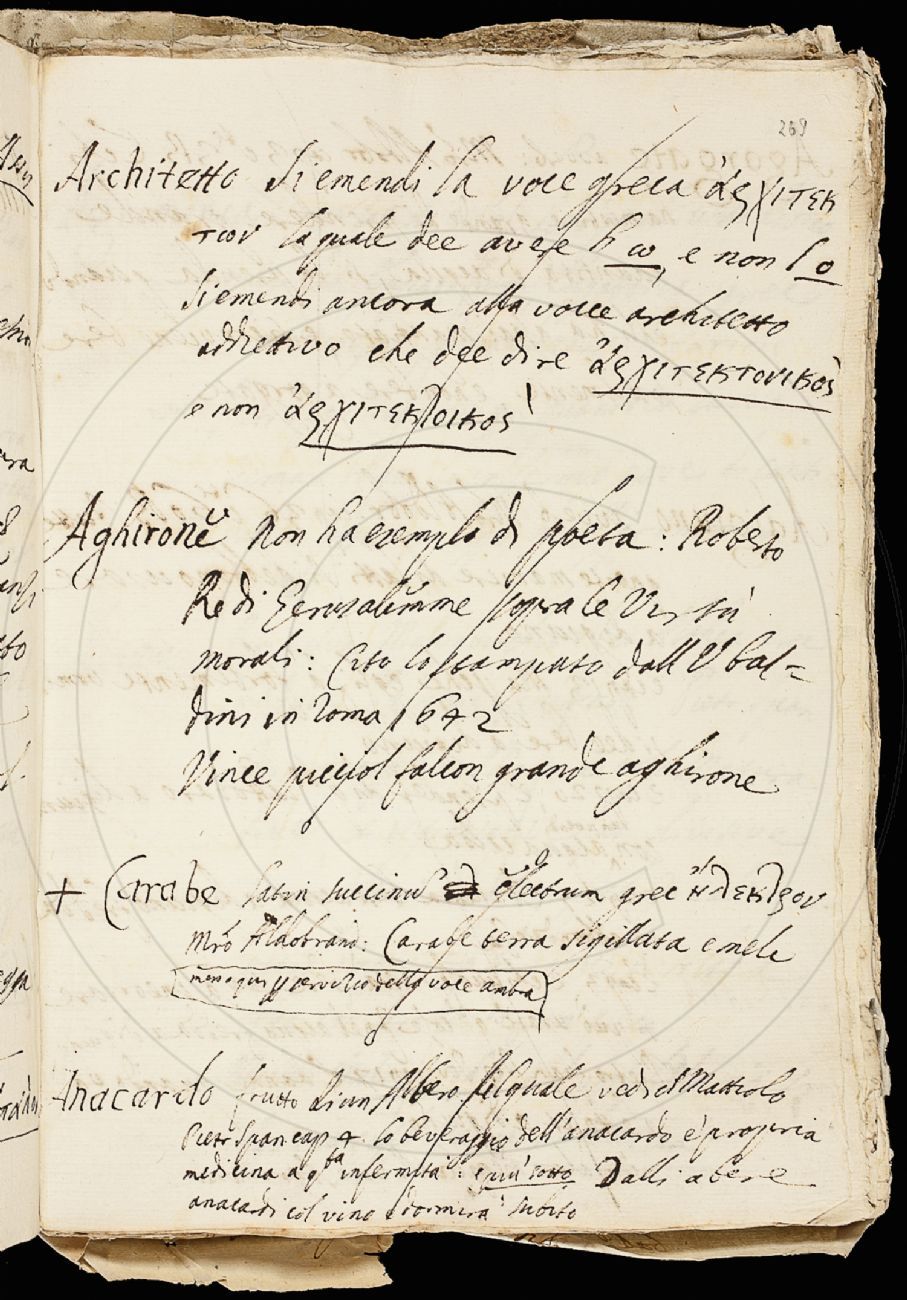 269
Architetto Si emendi la voce ghreca ἀρχιτεκ
των la quale dee avere l'ω, e non l'o
Si emendi ancora alla voce architetto
addiettivo che dee dire ἀρχιτεκτονικὸς
e non ἀρχιτεκτοικὸς
Aghirone Non ha exemplo di poeta: Roberto
Re di Gerusalemme sopra le Virtù
morali: Cito lo stampato dall Ubal=
dini in Roma 1642
Vince picciol falcon grande aghirone
+ Carabe latin succinu electrum grec ἤλεκτρον
Mro Aldobrand: Carabe terra sigillata e mele
meno qui servizio della voce ambra
Anacardo frutto di un Albero del quale vedi il Mattiolo
Pietr Span cap 4 lo beveraggio dell'anacardo è propria
medicina a qta infermità: e più sotto Dalli a bere
anacardi col vino e dormirà subito